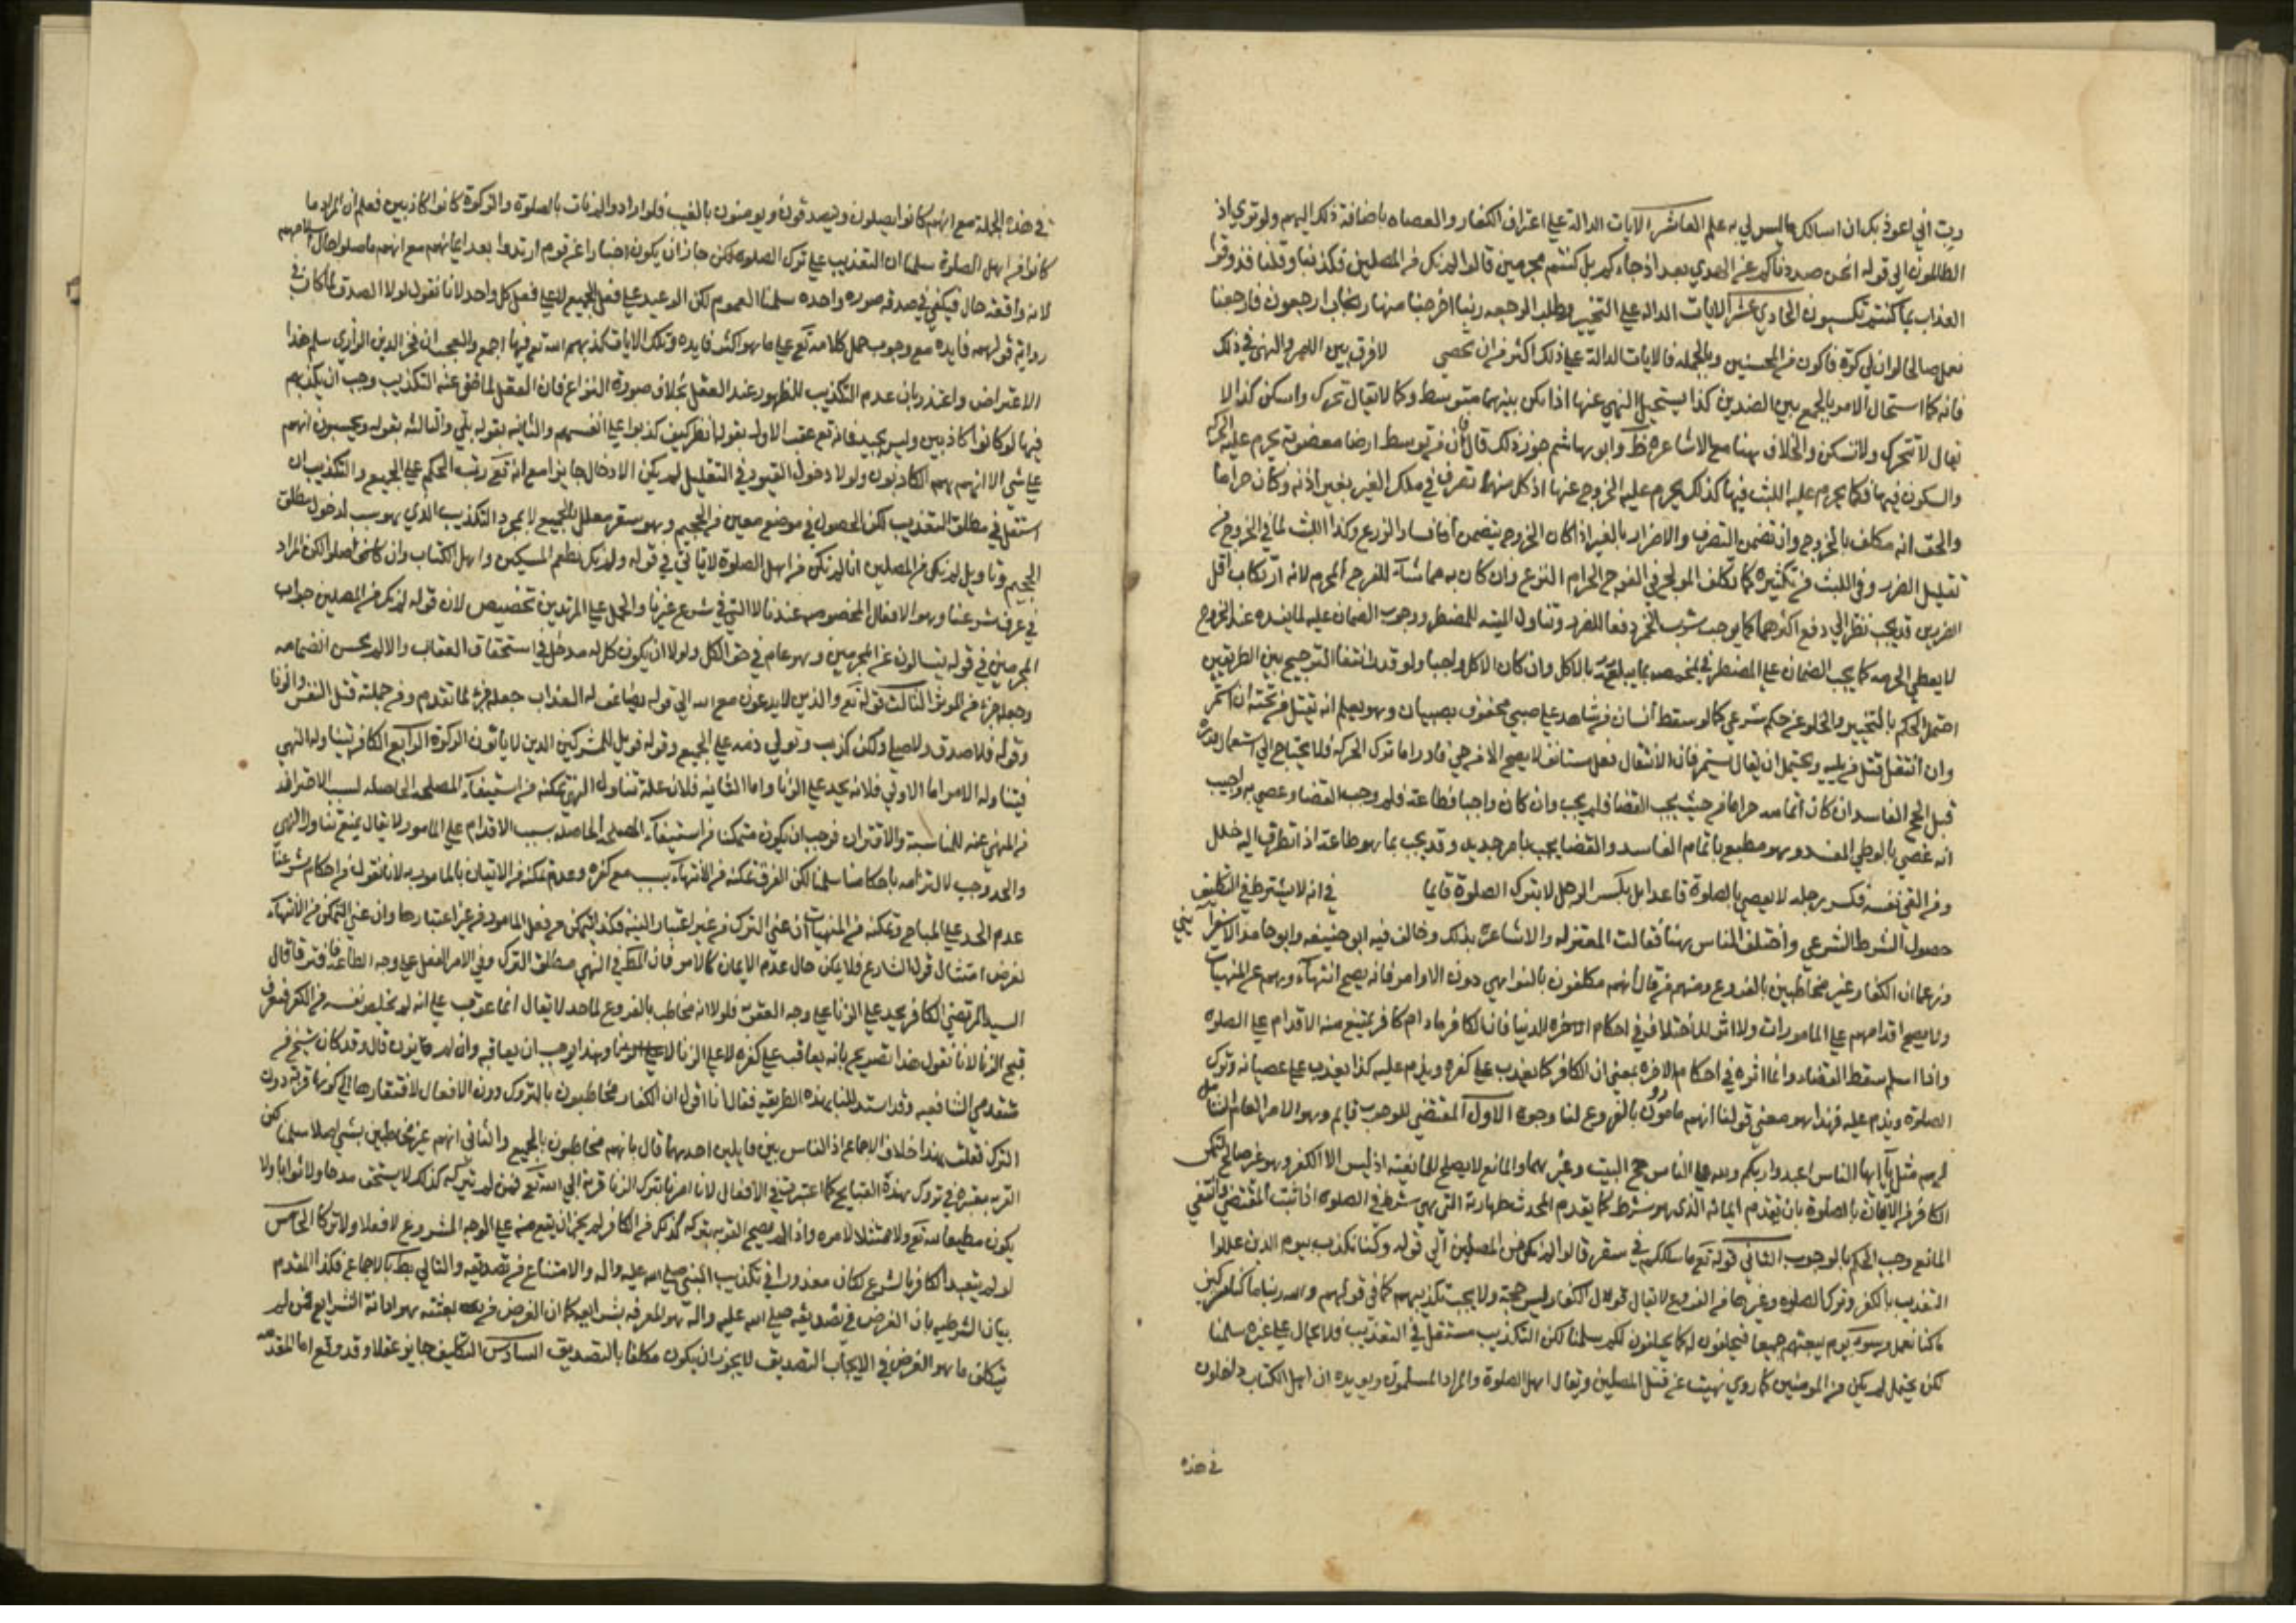 رب اني اعوذ بك ان اسالك ما ليس لي به علم العاشر الايات الدالة علي اعتراف الكفار والعصاه باضافة ذلك اليهم ولو تري اذ
الظالمون الي قوله انحن صددناكم عن الهدي بعد اذ جاءكم بل كنتم مجرمين قالوا لم نك من المصلين فكذبنا وقلنا فذوقوا
العذاب بما كنتم تكسبون الحادي عشر الايات الداله علي التحسر وطلب الرجعه ربنا اخرجنا منها رب ارجعون فارجعنا
نعمل صالحا لو ان لي كرة فاكون من المحسنين وبالجمله فالايات الدالة علي ذلك اكثر من ان تحصي لا فرق بين الامر والنهي في ذلك
فانه كما استحال الامر بالجمع بين الضدين كذا يستحيل النهي عنها اذا لم يكن بينهما متوسط وكما لا يقال تحرك واسكن كذا لا
يقال لا تتحرك ولا تسكن والخلاف هنا مع الاشاعره وابو هاشم جوز ذلك قال فان من توسط ارضا مغصوبة يحرم عليه الحركة
والسكون فيها فكما يحرم عليه اللبث فيها كذلك يحرم عليه الخروج عنها اذ كل منهما تصرف في ملك الغير بغير اذنه وكان حراما
والحق انه مكلف بالخروج وان تضمن التصرف والاضرار بالغير اذا كان الخروج يتضمن افساد الزرع وكذا اللبث لما في الخروج من
تقليل الضرر وفي اللبث من تكثيره كما تكلف المولج في الفرج الحرام النزع وان كان به مماسا للفرج المحرم لانه ارتكاب اقل
الضررين قد يجب نظرا الي دفع اكثرهما كما يوجب شرب الخمر دفعا للضرر وتناول الميته للمضطر ووجوب الضمان عليه لما يفسده عند الخروج
لا يعطي الحرمه كما يجب الضمان علي المضطر في المخمصه بما يتلفه بالاكل وان كان الاكل واجبا ولو قدر انتفا الترجيح بين الطريقين
احتمل الحكم بالتخيير والخلو عن حكم شرعي كما لو سقط انسان من شاهد علي صبي محفوف بصبيان وهو يعلم انه يقتل من تحته ان استمر
وان انتقل قتل من يليه ويحتمل ان يقال يستمر فان الانتقال فعل مستانف لا يصح الا من حي قادر اما ترك الحركة فلا يحتاج الي استعمال قدرة
قيل الحج الفاسد ان كان اتمامه حراما فمن حيث يجب القضا فلم يجب وان كان واجبا فطاعة فلم وجب القضا وعصي به واجيب
انه عصي بالوطي المفسد وهو مطيع باتمام الفاسد والقضا يجب بامر جديد وقد يجب بما هو طاعة اذا تطرق اليه خلل
ومن القي نفسه فكسر رجله لا يعصي بالصلوة قاعدا بل بكسر الرجل لا بترك الصلوة قايما في انه لا يشترط في التكليف
حصول الشرط الشرعي واختلف الناس هنا فقالت المعتزله والاشاعره بذلك وخالف فيه ابو حنيفه وابو حامد الاسفرايني
وزعما ان الكفار غير مخاطبين بالفروع ومنهم من قال انهم مكلفون بالنواهي دون الاوامر فانه يصح انتهاءوهم عن المنهيات
ولا يصح اقدامهم علي المامورات ولا اثر للاختلاف في احكام الدنيا فان الكافر ما دام كافر يمتنع منه الاقدام علي الصلوة
واذا اسلم سقط القضاء وانما اثره في احكام الاخرة بمعني ان الكافر كما يعذب علي كفره ويذم عليه كذا يعذب علي عصيانه وترك
الصلوة ويذم عليه فهذا هو معني قولنا انهم مامورون بالفروع لنا وجوه الاول المقتضي للوجوب قايم وهو الامر العام الشامل
لهم مثل يا ايها الناس اعبدوا ربكم ولله علي الناس حج البيت وغيرهما والمانع لا يصلح للمانعية اذ ليس الا الكفر وهو غير صالح لتمكن
الكافر من الاتيان بالصلوة بان يقدم ايمانه الذي هو شرط كما يقدم المحدث طهارته التي هي شرط في الصلوة اذا ثبت المقتضي وانتفي
المانع وجب الحكم بالوجوب الثاني قوله تع ما سلككم في سقر قالوا لم نك من المصلين الي قوله وكنا نكذب بيوم الدين عللوا
التعذيب بالكفر وترك الصلوة وغيرها من الفروع لا يقال قول الكفار ليس حجة ولا يجب تكذيبهم كما في قولهم والله ربنا ما كنا مشركين
ما كنا نعمل من سوء يوم يبعثهم جميعا فيحلفون له كما يحلفون لكم سلمنا لكن التكذيب مستقل في التعذيب فلا يحال علي غيره سلمنا
لكن يحتمل لم يكن من المومنين كما روي نهيت عن قتل المصلين ويقال اهل الصلوة والمراد المسلمون ويويده ان اهل الكتاب داخلون
في هذه
في هذه الجملة مع انهم كانوا يصلون ويتصدقون ويومنون بالغيب فلو ارادوا الاتيان بالصلوة والزكوة كانوا كاذبين فعلم ان المراد ما
كانوا من اهل الصلوة سلمنا ان التعذيب علي ترك الصلوة لكن جاز ان يكون اخبارا عن قوم ارتدوا بعد ايمانهم مع انهم ما صلوا حال اسلامهم
لانه واقعة حال فيكفي في صدقه صورة واحده سلمنا العموم لكن الوعيد علي فعل الجميع لا علي فعل كل واحد لانا نقول لولا الصدق لما كان في
رواية قولهم فايده مع وجوب حمل كلامه تع علي ما هو اكثر فايده وتلك الايات كذبهم الله تع فيها اجمع والعجب ان فخر الدين الرازي سلم هذا
الاعتراض واعتذر بان عدم التكذيب للظهور عند العقل بخلاف صورة النزاع فان العقل لما خفي عنه التكذيب وجب ان يكذبهم
فيها لو كانوا كاذبين وليس بجيد فانه تع عقب الاولي بقوله انظر كيف كذبوا علي انفسهم والثانية بقوله بلي والثالثه بقوله ويحسبون انهم
علي شي الا انهم هم الكاذبون ولولا دخول القيود في التعليل لم يكن الادخال جايزا مع انه تع رتب الحكم علي الجميع والتكذيب ان
استقل في مطلق التعذيب لكن الحصول في موضع معين من الجحيم وهو سقر معلل بالجميع لا بمجرد التكذيب الذي هو سبب لدخول مطلق
الجحيم وتاويل لم نك من المصلين انا لم نكن من اهل الصلوة لا يتاتي في قوله ولم نك نطعم المسكين واهل الكتاب وان كانوا صلوا لكن المراد
في عرف شرعنا وهو الافعال المخصوصه عندنا لا التي في شرع غيرنا والحمل علي المرتدين تخصيص لان قوله لم نك من المصلين جواب
المجرمين في قوله يتسالون عن المجرمين وهو عام في حق الكل ولولا ان يكون كل له مدخل في استحقاق العقاب والا لم يحسن انضمامه
وجعله جزء من الموثر الثالث قوله تع والذين لا يدعون مع الله الي قوله يضاعف له العذاب جعله جزء لما تقدم ومن جملته قتل النفس والزنا
وقوله فلا صدق ولا صلي ولكن كذب وتولي ذمه علي الجميع وقوله فويل للمشركين الذين لا ياتون الزكوة الرابع الكافر يتناوله النهي
فيتناوله الامر اما الاولي فلانه يحد علي الزنا واما الثانية فلان علة تناول النهي تمكنه من استيفاء المصلحه الحاصله بسبب الاحتراز
من المنهي عنه للمناسبة والاقتران فوجب ان يكون متمكنا من استيفاء المصلحه الحاصله بسبب الاقدام علي المامور لا يقال يمنع تناول النهي
والحد وجب لالتزامه باحكامنا سلمنا لكن الفرق تمكنه من الانتهاء بسبب مع كفره وعدم تمكنه من الاتيان بالمامور به لانا نقول من احكام شرعنا
عدم الحد علي المباح وتمكنه من المنهيات ان عني الترك من غير اعتبار النية فكذا يتمكن من فعل المامور من غير اعتبارها وان عني التمكن من الانتهاء
لغرض امتثال قول الشارع فلا يمكن حال عدم الايمان كالامر فان المطلوب في النهي مطلق الترك وفي الامر الفعل علي وجه الطاعة فافترقا قال
السيد المرتضي الكافر يحد علي الزنا علي وجه العقوبة فلولا انه مخاطب بالفروع لما حد لا يقال انما عوقب علي انه لم يخلص نفسه من الكفر فيعرف
قبح الزنا لانا نقول هذا تصريح بانه يعاقب علي كفره لا علي الزنا وهذا يوجب ان يعاقبه وان لم يزن قال وقد كان شيخ من
متقدمي الشافعيه وقد استدللنا بهذه الطريقة فقال انا اقول ان الكفار مخاطبون بالتروك دون الافعال لافتقارها الي كونها قربة دون
الترك فقلت هذا خلاف الاجماع اذ الناس بين قايلين احدهما قال بانهم مخاطبون بالجميع والثاني انهم غير مخاطبين بشي اصلا سلمنا لكن
القربة معتبرة في تروك هذه القبايح كما اعتبرت في الافعال لانا امرنا بترك الزنا قربة الي الله تع فمن لم يتركه كذلك لا يستحق مدحا ولا ثوابا ولا
يكون مطيعا لله تع ولا ممتثلا لامره واذا لم يصح التقرب بتركه كذلك من الكافر لم يجز ان يقع منه علي الوجه المشروع لا فعلا ولا تركا الخامس
لو لم يتعبد الكافر بالشرع لكان معذورا في تكذيب النبي صلي الله عليه واله والامتناع من تصديقه والتالي بط بالاجماع فكذا المقدم
بيان الشرطيه بان الغرض في تصديقه صلي الله عليه واله هو المعرفه بشرايعه كما ان الغرض من بعثته هو ادائه الشرايع فمن لم
يكلف ما هو الغرض في الايجاب التصديق لا يجوز ان يكون مكلفا بالتصديق السادس التكليف جايز عقلا وقد وقع اما المقدمة